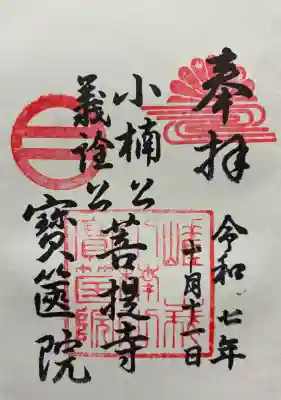 奉拝
令和七年
十月十一日
小楠公菩提寺
義詮公
寶篋院